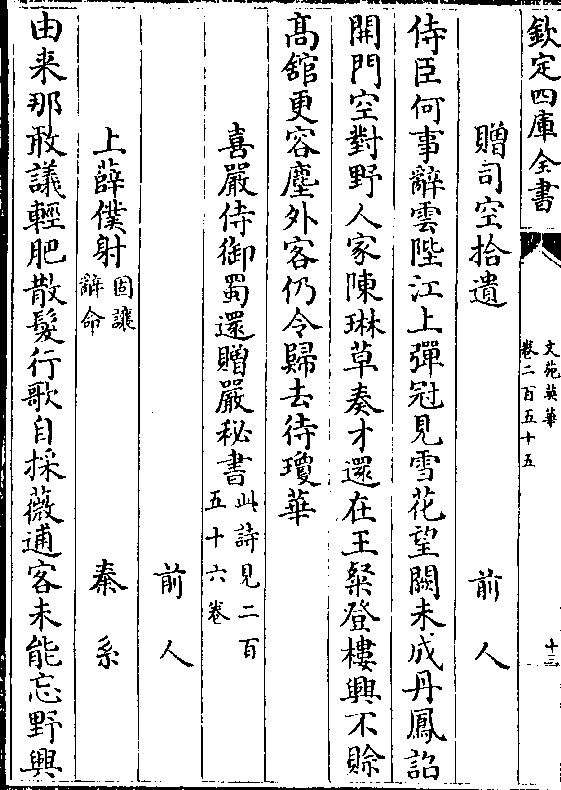 欽定四庫全書
文苑英華
卷二百五十五
十三
贈司空拾遺 前人
侍臣何事辭雲陛江上彈冠見雪花望闕未成丹鳳詔
開門空對野人家陳琳草奏才還在王粲登樓興不賒
髙舘更容塵外客仍令歸去待瓊華
喜嚴侍御蜀還贈嚴秘書此詩見二百五十六卷
前人
上薛僕射固讓辭命 秦系
由来那敢議輕肥散髪行歌自採薇逋客未能忘野興